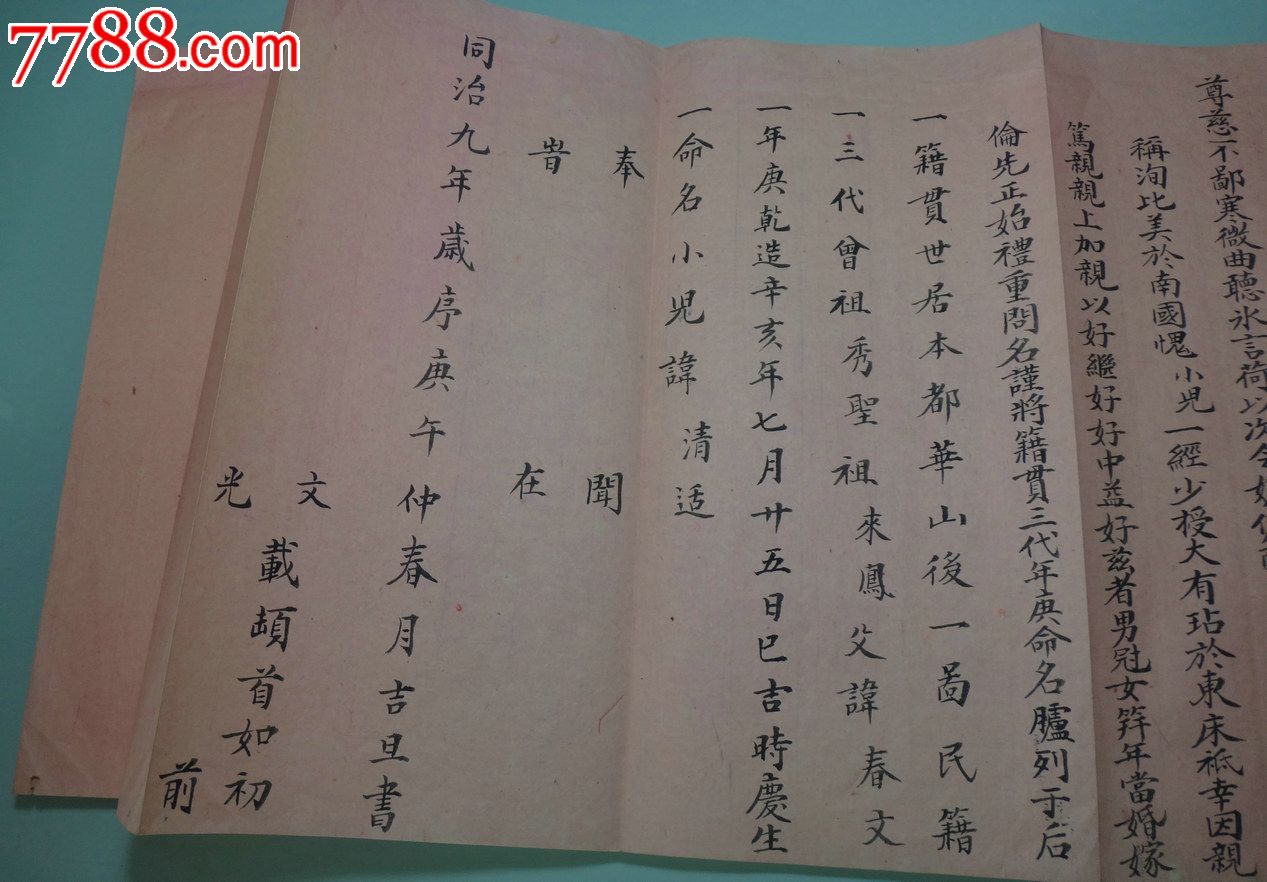 7788.com
尊慈不鄙寒微曲聽氷言荷以次令
稱洵比美於南國愧小児一經少授大有玷於東床祗幸因親
篤親親上加親以好繼好好中益好茲者男冠女笄年當婚嫁
倫先正始禮重問名謹將籍貫三代年庚命名臚列于后
一籍貫世居本都華山後一啚民籍
一三代曾祖秀聖祖來鳳父諱春文
一年庚乾造辛亥年七月廿五日巳吉時慶生
一命名小児諱清适
奉 聞
旹 在
同治九年歲序庚午仲春月吉旦書
文
載頓首如初
光
前